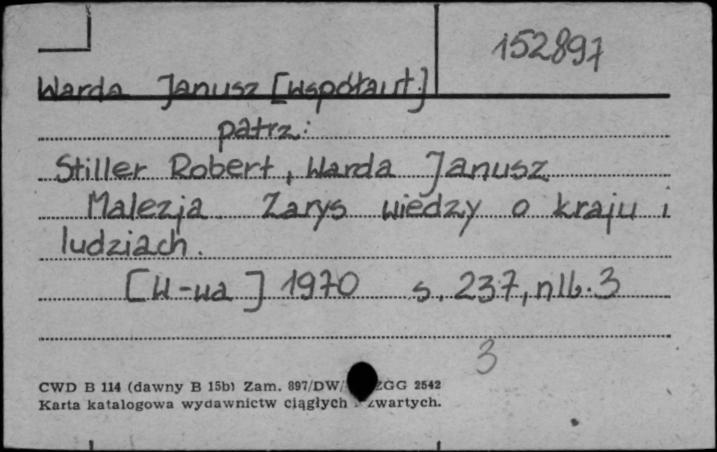 152897
Warda Janusz [współaut.]
patrz:
Stiller Robert, Warda Janusz
Malezja Zarys wiedzy o kraju i
ludziach.
[W-wa] 1970 s. 237, nlb. 3
3
CWD B 114 (dawny B 15b) Zam. 897/DW/ ZGG 2542
Karta katalogowa wydawnictw ciągłych zwartych.